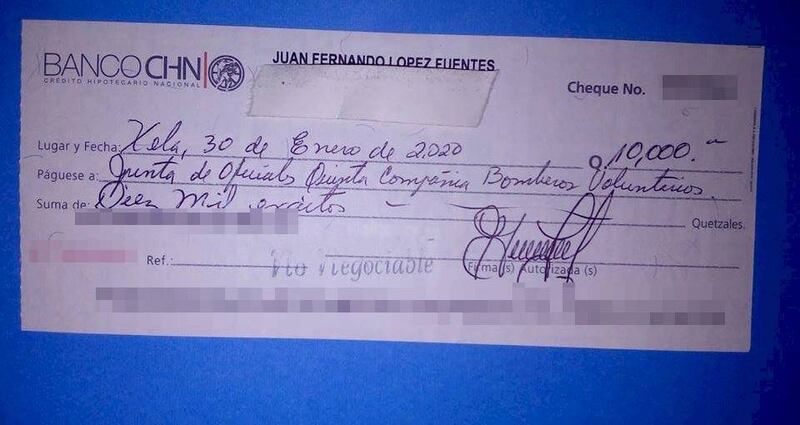 BANCO CHN
CRÉDITO HIPOTECARIO NACIONAL
JUAN FERNANDO LOPEZ FUENTES
Cheque No.
Lugar y Fecha: Xela, 30 de Enero de 2,020 Q 10,000.
Páguese a: Junta de Oficiales Quinta Compañia Bomberos Voluntarios.
Suma de: Diez Mil exactos Quetzales.
Ref.: No Negociable Firma(s) Autorizada (s)